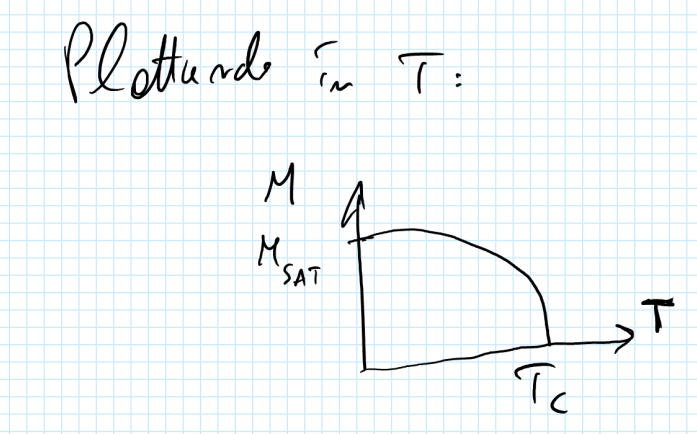 Plottando in T:
M
M_SAT
T
T_C